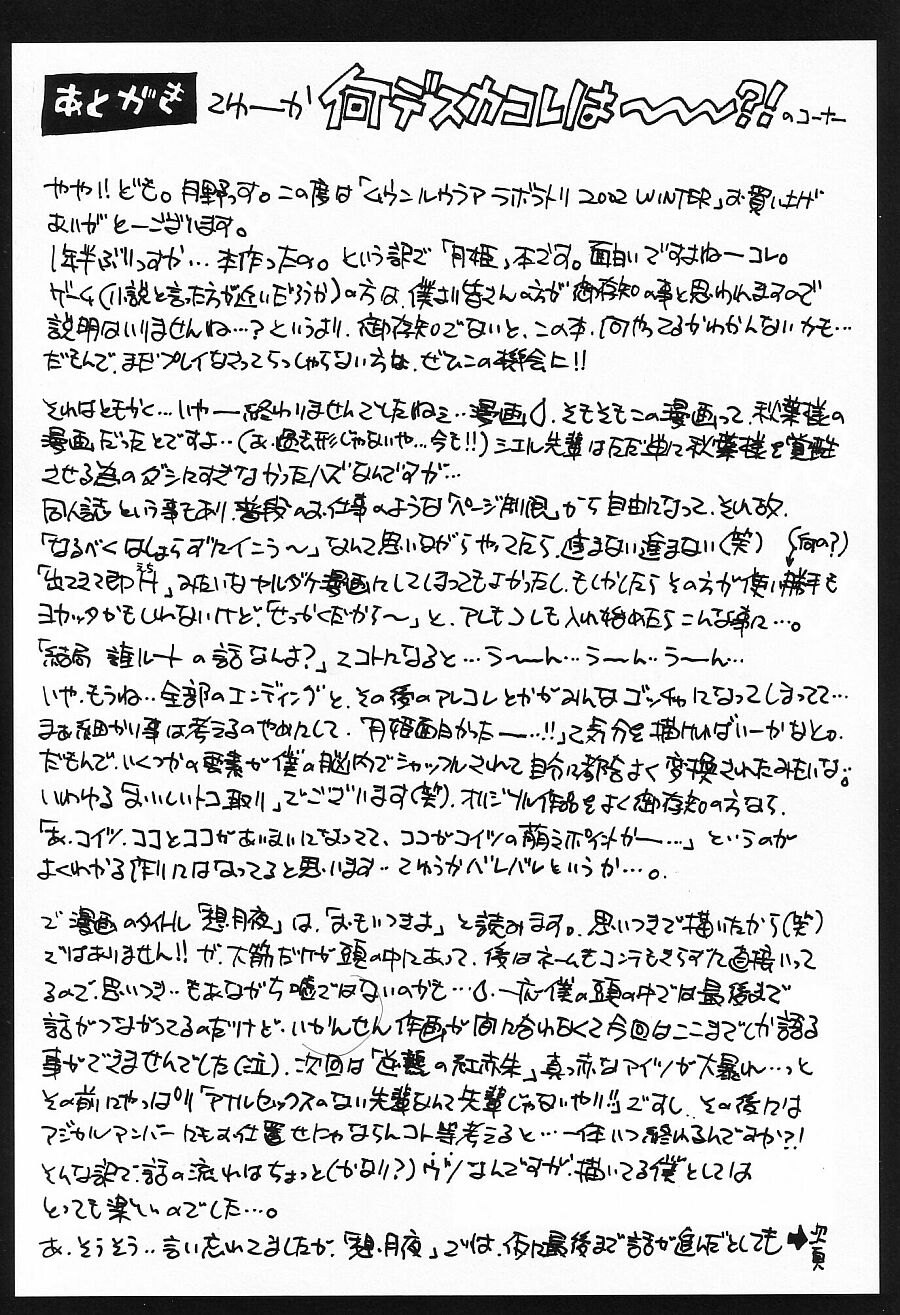 あとがき てゆーか 何デスカコレは〜〜〜?! のコーナー
ややっ!! ども。月野っす。この度は「ムウンルウラア ラボラトリ 2002 WINTER」お買い上げ
ありがとーございます。
1年半ぶりっすか…本作ったの。という訳で「月姫」本です。面白いですよねーコレ。
ゲーム(小説と言った方が近いだろうか)の方は、僕より皆さんの方が御存知の事と思われますので
説明はいりませんね…?というより、御存知でないと、この本、何やってるかわかんないかも…
だもんで、まだプレイなさってらっしゃらない方は、ぜひこの機会に!!
それはともかく…いやー終わりませんでしたねェ…漫画。そもそもこの漫画って、秋葉様の
漫画だったとですよ…(あ、過去形じゃないや…今も!!)シエル先輩はただ単に秋葉様を覚醒
させる為のダシにすぎなかったハズなんですが…
同人誌という事もあり、普段のお仕事のような「ページ制限」から自由になって、それ故、
「なるべくはしょらずにイこう〜」なんて思いながらやってたら、進まない進まない(笑) (何の?)
「出てきて即H」みたいなヤルダケ漫画にしてしまってもよかったし、もしかしたらその方が使い勝手も
ヨカッタかもしれないけど、「せっかくだから〜」と、アレもコレも入れ始めたらこんな事に…。
「結局 誰ルートの話なんよ?」てコトになると…う〜ん…う〜ん…う〜ん…
いや、もうね…全部のエンディングと、その後のアレコレとかがみんなゴッチャになってしまってて…
まぁ細かい事は考えるのやめにして、「月姫面白かったー…!!」て気分を描ければいーかなとの。
だもんで、いくつかの要素が僕の脳内でシャッフルされて自分に都合よく変換されたみたいな。
いわゆる「おいしいトコ取り」でございます(笑)。オリジナル作品をよく御存知の方なら、
「あ、コイツ、ココとココがあいまいになってて、ココがコイツの萌えポイントかー…」というのが
よくわかる作りにはなってると思います…てゆうかバレバレというか…。
で 漫画のタイトル「想月夜」は、「おもいつきよ」と読みます。思いつきで描いたから(笑)
ではありません!! が、大筋だけが頭の中にあって、後はネームもコンテもきらずに直接いって
るので、思いつき…もあながち嘘ではないのかも…。一応僕の頭の中では最後まで
話がつながってるのだけど、いかんせん作画が間に合わなくて今回はここまでしか語る
事ができませんでした(泣)。次回は「逆襲の紅赤朱」真っ赤なアイツが大暴れ…っと
その前にやっぱり「アナルセックスのない先輩なんて先輩じゃないやい!!」ですし、その後には
マジカルアンバーにもお仕置せにゃならんコト等考えると…一体いつ終わるんですか?!
そんな訳で、話の流れはちょっと(かなり?)ウソなんですが、描いてる僕としては
とっても楽しいのでした…。
あ、そうそう…言い忘れてましたが、「想月夜」では、仮に最後まで話が進んだとしても➡次頁